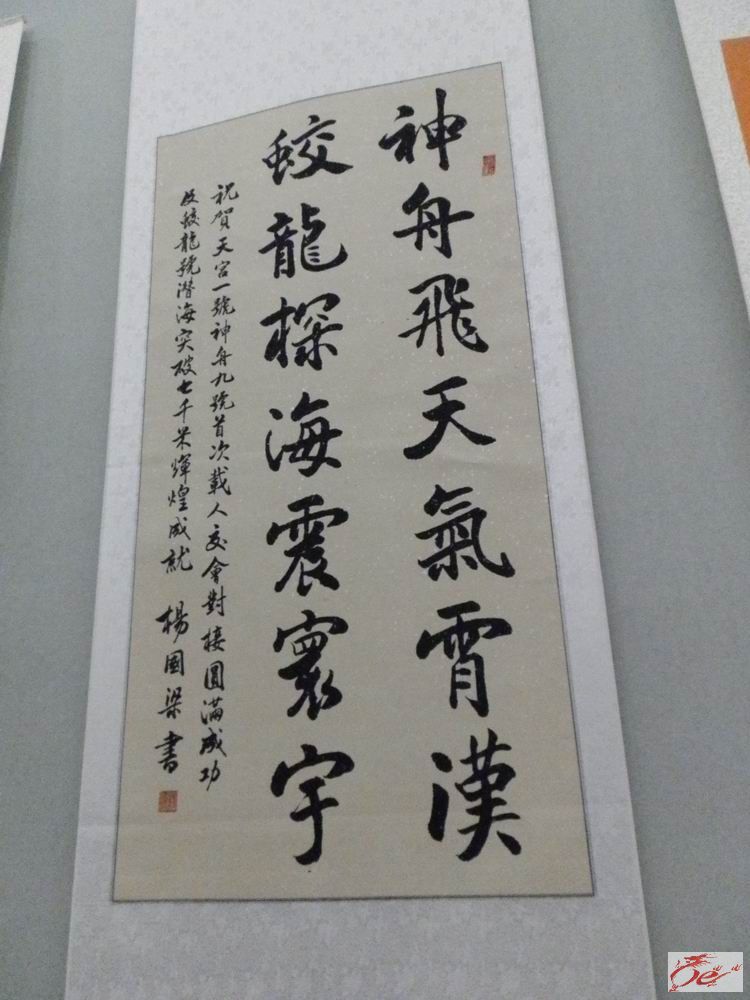 神舟飛天氣霄漢
蛟龍探海震寰宇
祝賀天宮一號神舟九號首次載人交會對接圓滿成功
及蛟龍號潛海突破七千米輝煌成就 楊國梁書